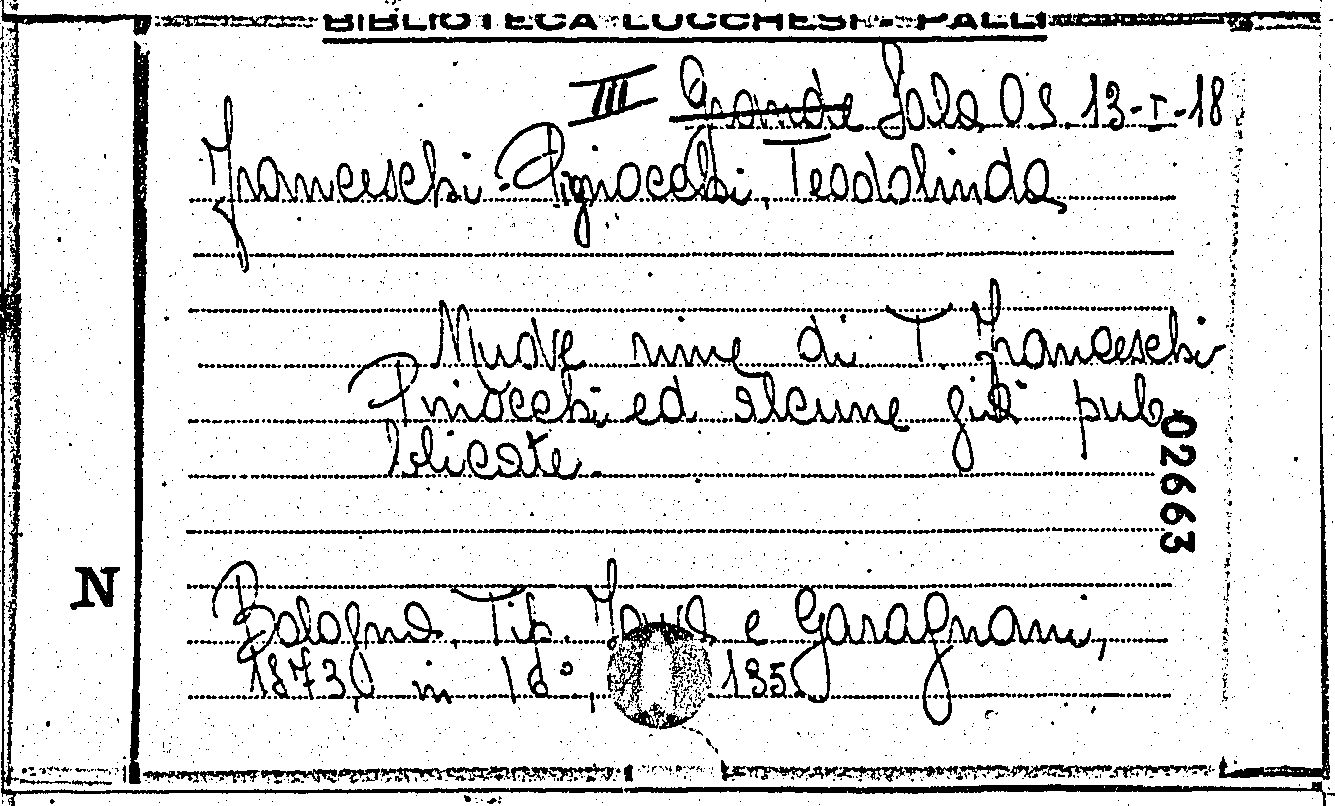 BIBLIOTECA LUCCHESI - PALLI
III Grande Sala O S. 13-I-18
Franceschi-Pignocchi, Teodolinda
Nuove rime di T Franceschi
Pniocchi ed alcune già pub
blicate.
02663
N
Bologna, Tip. Fava e Garagnani,
1873, in 16°, 135